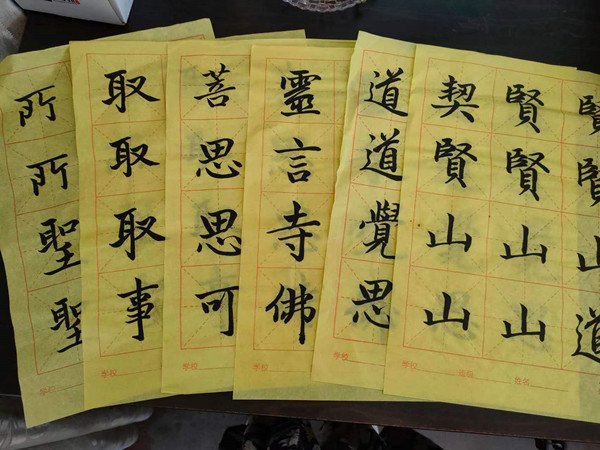 所所聖聖
学校
取取取事
学校
菩思思可
学校
靈言寺佛
学校
道道覺思
学校
契賢山山
賢賢山山
賢賢山道
学校 班级 姓名